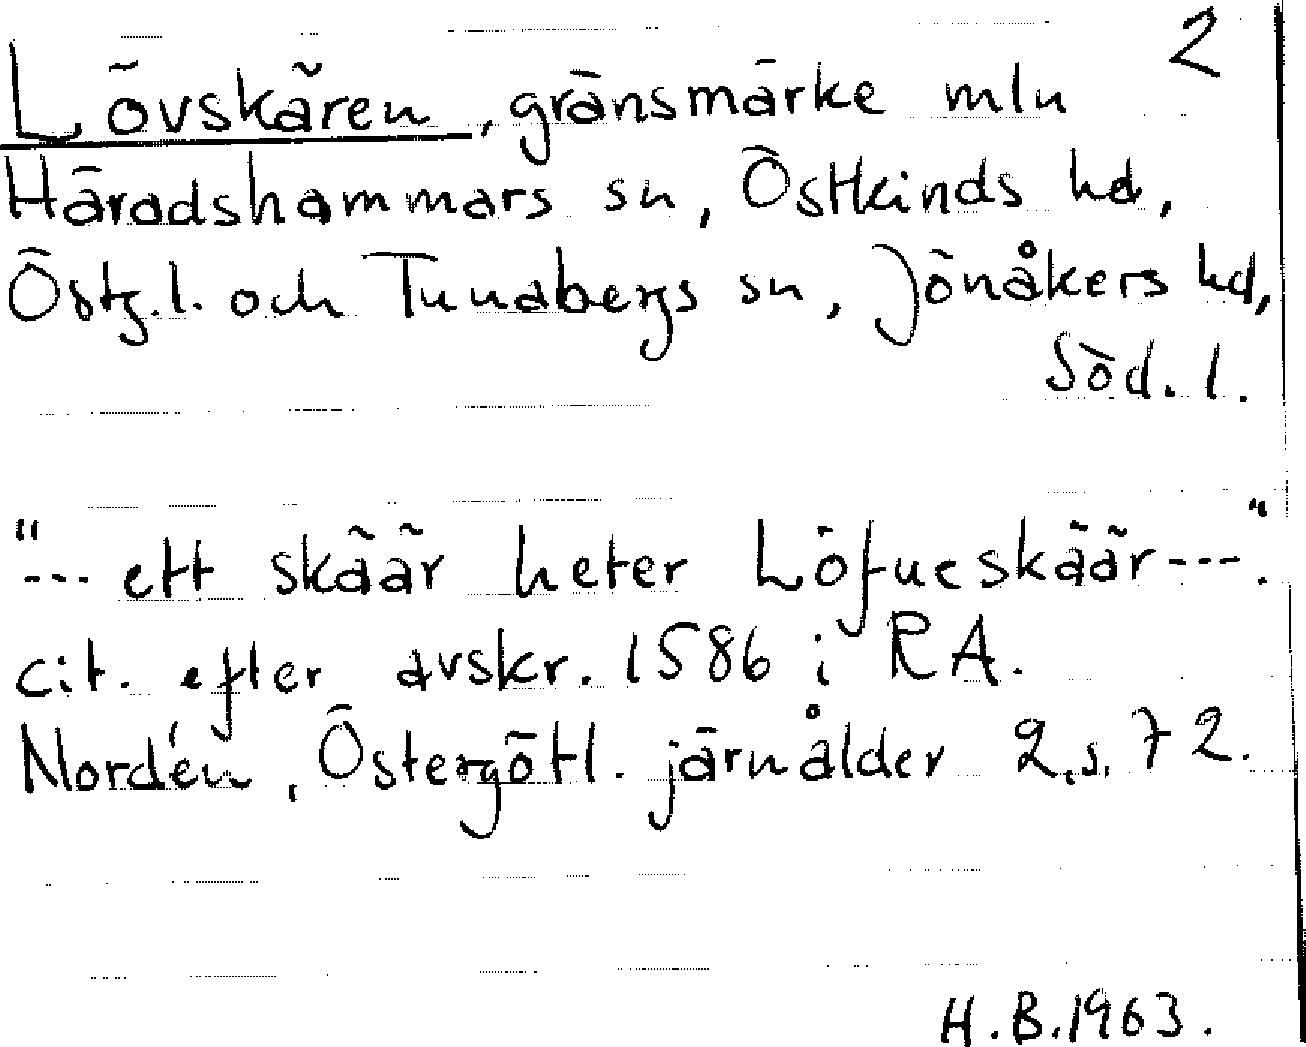 2
Lövskären, gränsmärke mln
Häradshammars sn, Östkinds hd,
Östg.l. och Tunabergs sn, Jönåkers hd,
Söd.l.
"--- ett skäär heter Löfueskäär---".
cit. efter avskr. 1586 i RA.
Nordén, Östergötl. järnålder 2,s.72.
H.B.1963.